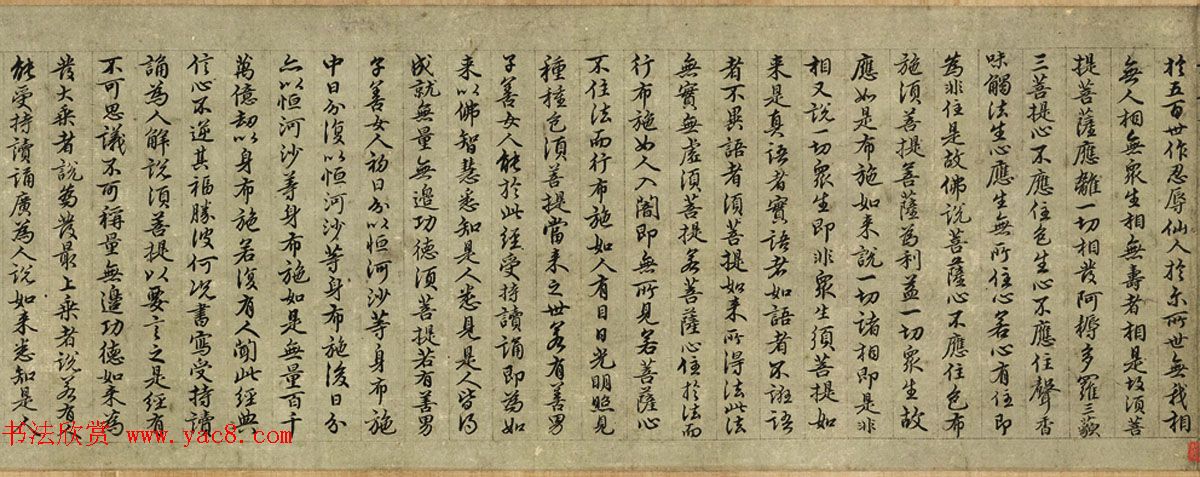 於五百世作忍辱仙人於尔所世無我相
無人相無眾生相無壽者相是故須菩
提菩薩應離一切相發阿耨多羅三藐
三菩提心不應住色生心不應住聲香
味觸法生心應生無所住心若心有住即
為非住是故佛說菩薩心不應住色布
施須菩提菩薩為利益一切眾生故
應如是布施如来說一切諸相即是非
相又說一切眾生即非眾生須菩提如
来是真語者實語者如語者不誑語
者不異語者須菩提如来所得法此法
無實無虛須菩提若菩薩心住於法而
行布施如人入闇即無所見若菩薩心
不住法而行布施如人有目日光明照見
種種色須菩提當来之世若有善男
子善女人能於此經受持讀誦即為如
来以佛智慧悉知是人悉見是人皆得
成就無量無邊功德須菩提若有善男
子善女人初日分以恒河沙等身布施
中日分復以恒河沙等身布施後日分
亦以恒河沙等身布施如是無量百千
萬億劫以身布施若復有人聞此經典
信心不逆其福勝彼何況書寫受持讀
誦為人解說須菩提以要言之是經有
不可思議不可稱量無邊功德如来為
發大乘者說為發最上乘者說若有人
能受持讀誦廣為人說如来悉知是人
书法欣赏 www.yac8.com